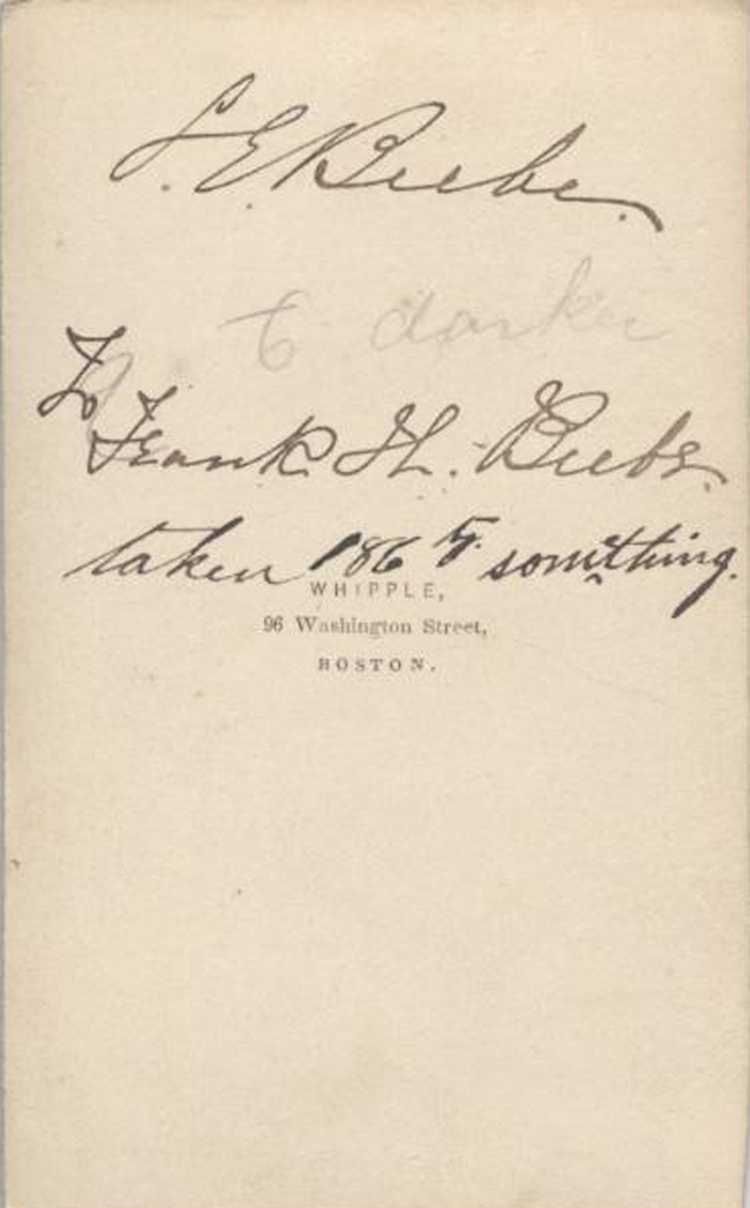 J. E. Beebe.
6 darker
To
Frank H. Beebe.
taken 1865 something.
WHIPPLE,
96 Washington Street,
BOSTON.